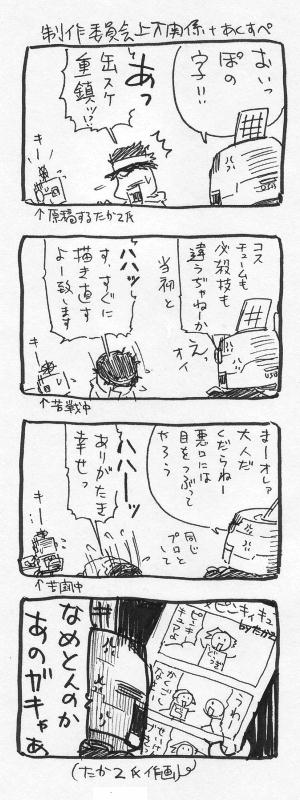 制作委員会上下関係+あくすぺ
おいっ
ぽの
字!!
あっ
缶スケ
重鎮ッ!?
キー
↑原稿するたか乙氏
コス
チュームも
必殺技も
違うぢゃねーか
えっ
オイ
当初と
ハハッ
す、すぐに
描き直す
よー致します
キー
↑苦戦中
まーオレァ
大人だ
くだらねー
悪口には
目をつぶって
やろう
同じ
プロと
して
ハハーッ
ありがたき
幸せっ
キー
↑苦闘中
ピンキィキュ
byたか乙
なめとんのか
あのガキャあ
(たか乙氏作画)